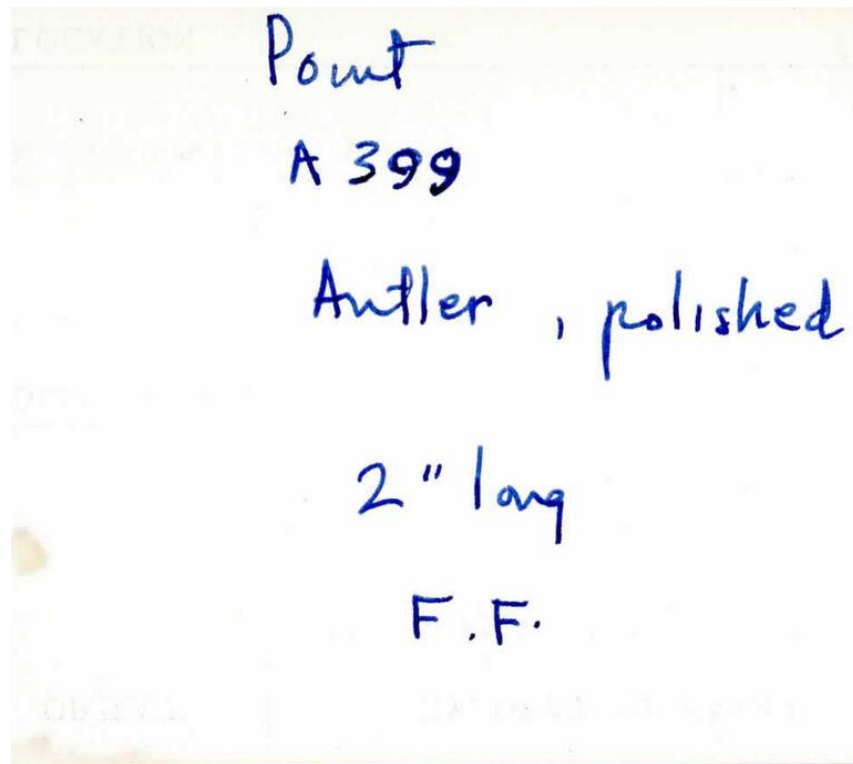 Point
A 399
Antler, polished
2" long
F.F.